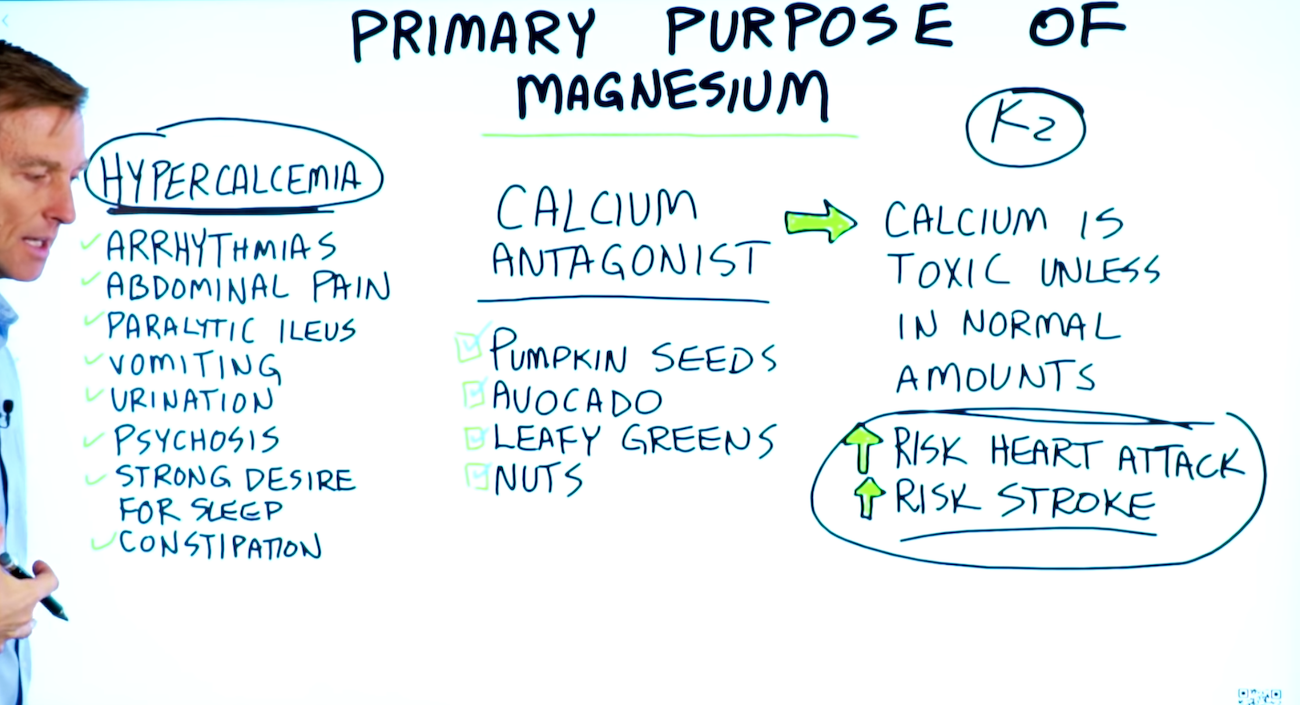 PRIMARY PURPOSE OF
MAGNESIUM
HYPERCALCEMIA
ARRHYTHMIAS
ABDOMINAL PAIN
PARALYTIC ILEUS
VOMITING
URINATION
PSYCHOSIS
STRONG DESIRE
FOR SLEEP
CONSTIPATION
CALCIUM
ANTAGONIST
PUMPKIN SEEDS
AVOCADO
LEAFY GREENS
NUTS
K2
CALCIUM IS
TOXIC UNLESS
IN NORMAL
AMOUNTS
↑ RISK HEART ATTACK
↑ RISK STROKE